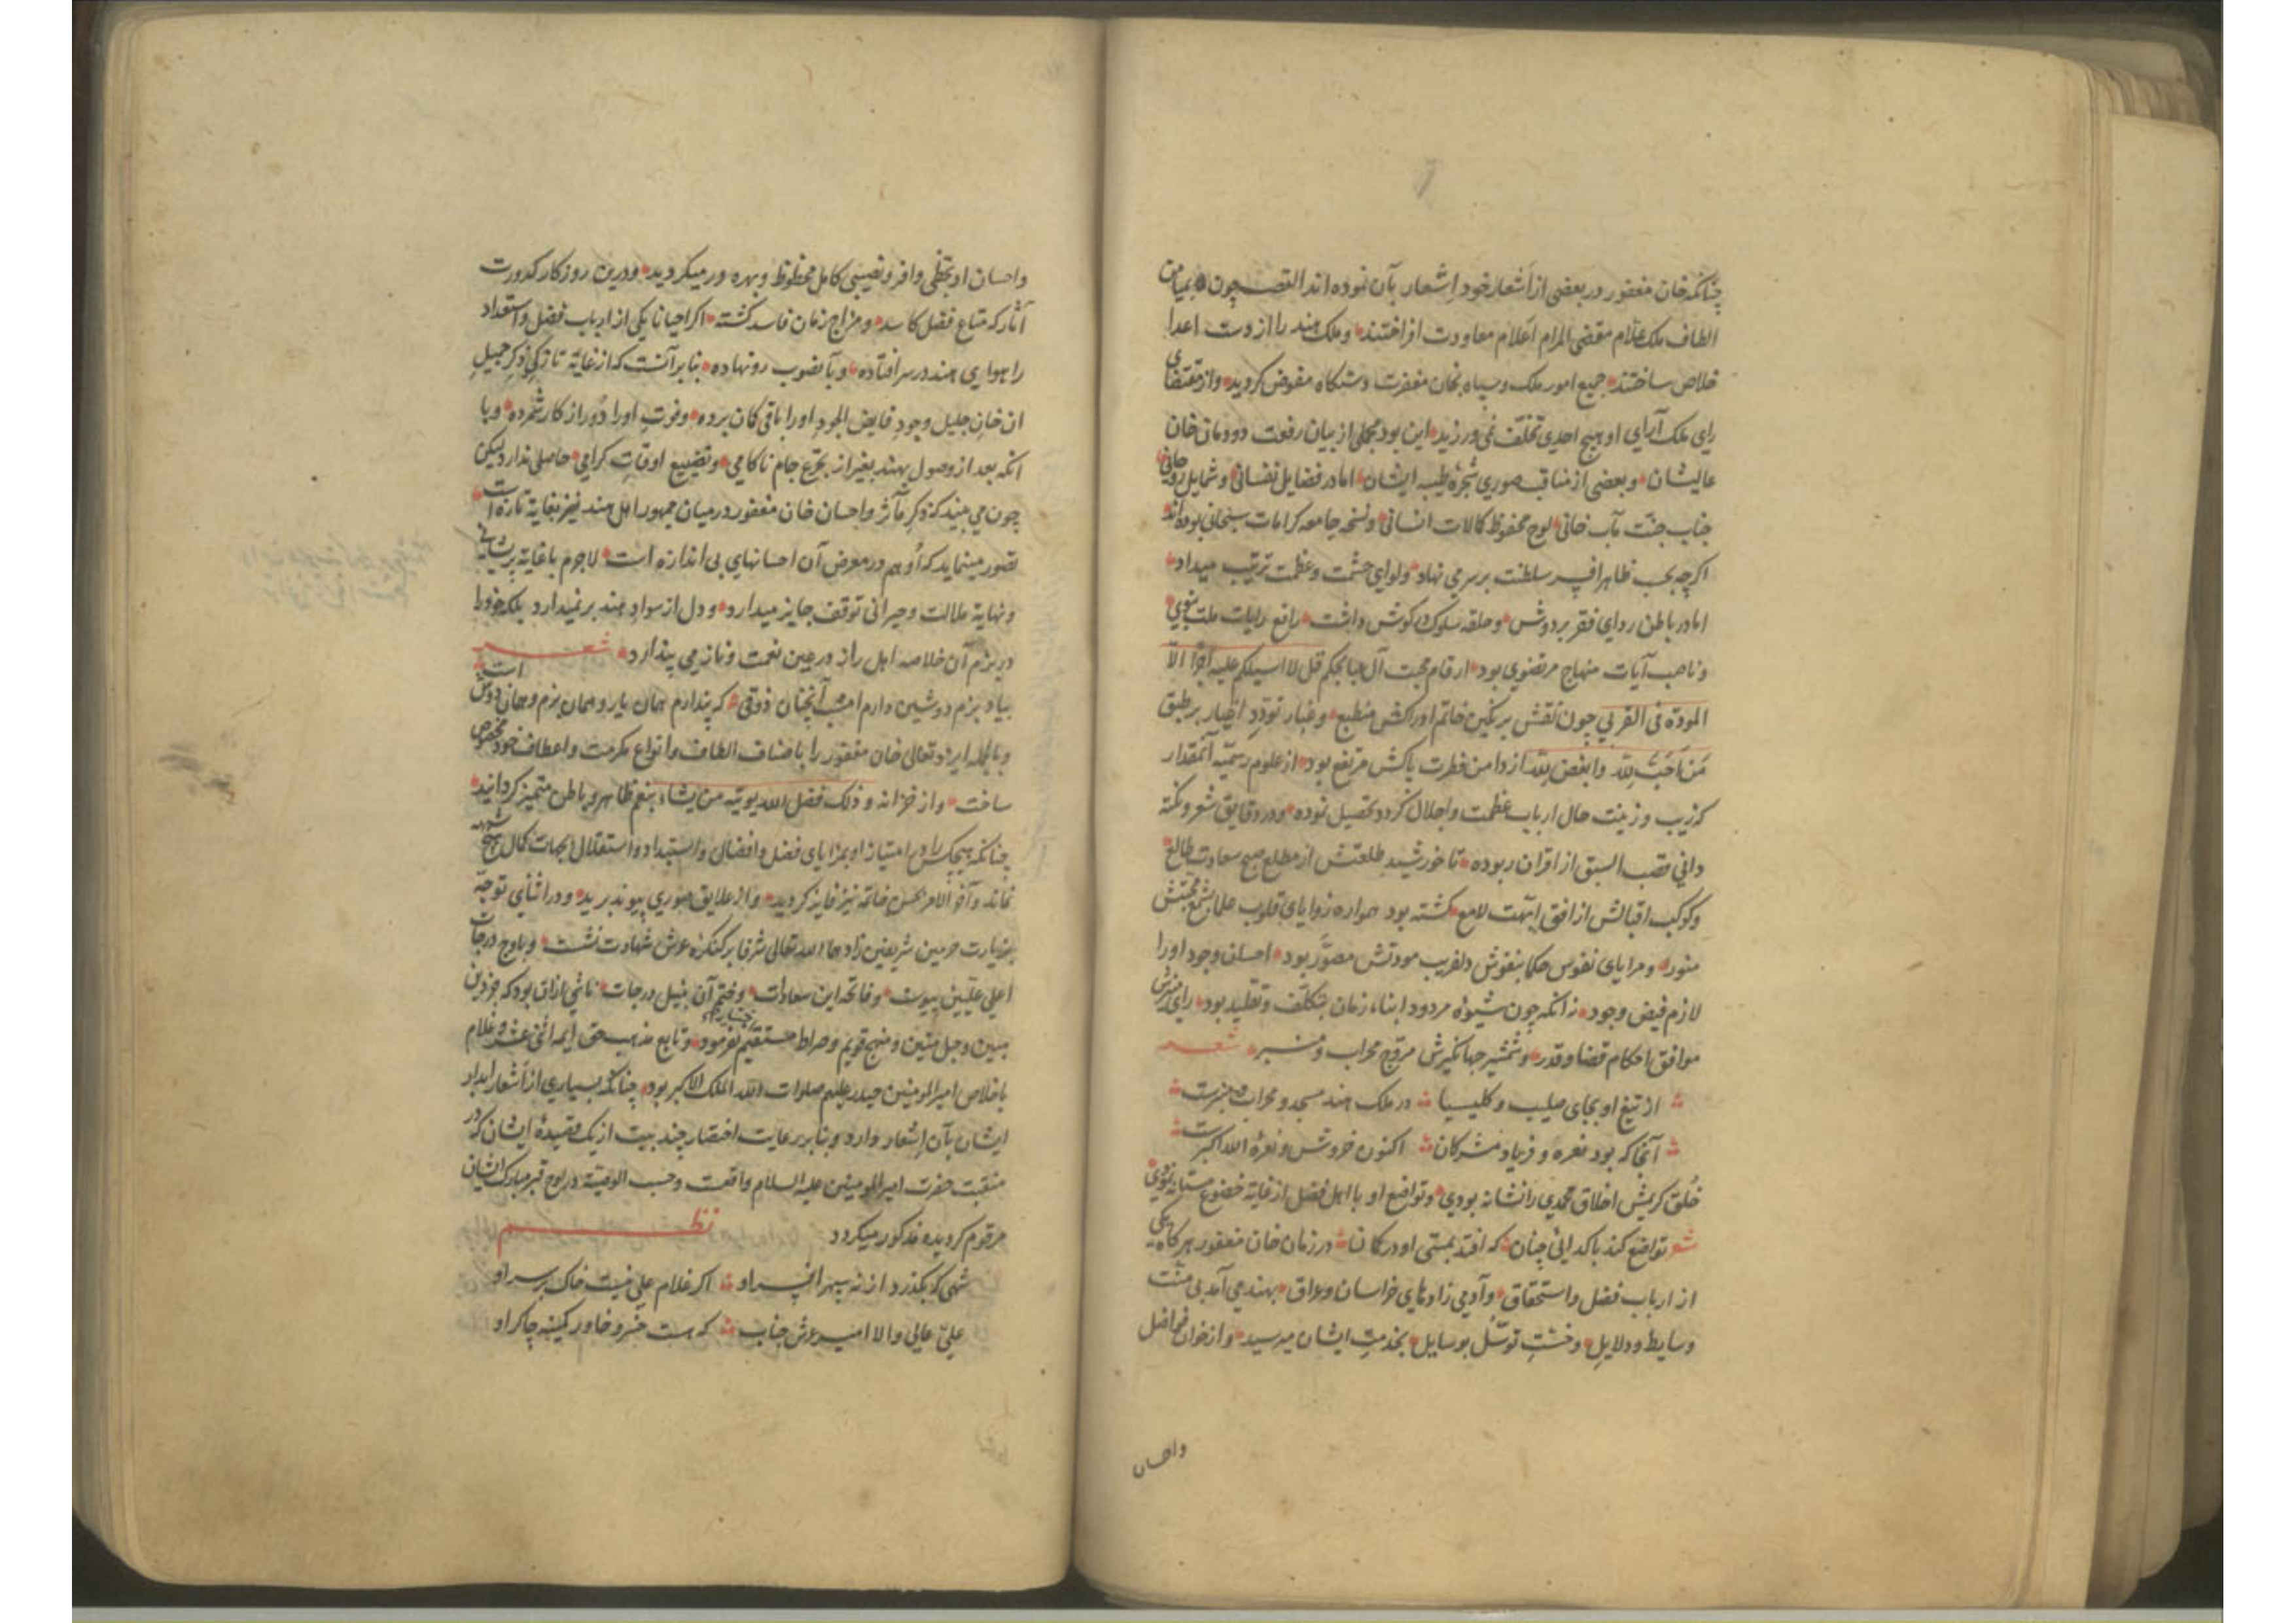 چنانکه خان مغفور در بعضی از اَشعار خود اِشعار بآن نموده اند القصه چون بمیامن
الطاف ملک علام مقضی المرام اَعلام معاودت افراختند و ملک هند را از دست اعدا
خلاص ساختند جمیع امور ملک و سپاه بخان مغفرت دستگاه مفوض کردید و از مقتضای
رای ملک آرای او هیچ احدی تخلّف نمی ورزید این بود مجملی از بیان رفعت دودمان خان
عالیشان و بعضی از مناقب صوری شجرهٔ طیبه ایشان اما در فضایل نفسانی و شمایل روحانی
جناب جنّت مآب خانی لوح محفوظ کمالات انسانی و نسخه جامعه کرامات سبحانی بوده اند
اکرچه بحسب ظاهر افسر سلطنت بر سر می نهاد و لوای حشمت و عظمت ترتیب میداد
اما در باطن ردای فقر بر دوش و حلقه سلوک در کوش داشت رافع رایات ملت نبوی
و ناصب آیات منهاج مرتضوی بود ارقام محبت آل عبا بحکم قل لا اسیلکم علیه اجرًا الّا
المودّة فی القربی چون نقش بر نکین خاتم ادراکش منطبع و غبار تودّد اغیار بر طبق
مَن اَحَبَّ لِلّه وابغض لِلّه از دامن فطرت پاکش مرتفع بود از علوم رسمیّه آنمقدار
که زیب و زینت حال ارباب عظمت و اجلال کردد تحصیل نموده و در دقایق شعر و نکته
دانی قصب السبق از اقران ربوده تا خورشید طلعتش از مطلع صبح سعادت طالع
و کوکب اقبالش از افق ابّهت لامع کشته بود همواره زوایای قلوب علما بشمع محبّتش
منور و مرایای نفوس حکما بنقوش دلفریب مودتش مصوَّر بود احسان وجود او را
لازم فیض وجود نه انکه چون شیوهٔ مردود ابناء زمان بتکلّف و تقلید بود رای منیرش
موافق با حکام قضا و قدر و شمشیر جهانکیرش مروّج محراب و منبر شعر
از تیغ او بجای صلیب و کلیسیا در ملک هند مسجد و محراب و منبرست
آنجا که بود نعره و فریاد مشرکان اکنون خروش و نعرهٔ الله اکبرست
خُلق کریمش اخلاق محمدی را نشانه بودی و تواضع او با اهل فضل از غایة خضوع
شعر تواضع کند با کدائی چنان که افتد بمستی او در کمان در زمان خان مغفور هر کاه یکی
از ارباب فضل و استحقاق و آدمی زادهای خراسان و عراق بهند می آمد بی منّت
وسایط و دلایل و خشت توسّل بوسایل بخدمت ایشان میرسید و از خوان فواضل
واحسان
واحسان او بحظّی وافر و نصیبی کامل محظوظ و بهره ور میکردید و درین روزکار کدورت
آثار که متاع فضل کاسد و مزاج زمان فاسد کشته اکر احیانا یکی از ارباب فضل و استعداد
را هوای هند در سر افتاده و بآنصوب رو نهاده بنابر آنست که از غایة تازکی ذکر جمیل
ان خان جلیل وجود فایض الجود او را باقی کمان برده و فوتِ او را دُور از کار شمرده و با
انکه بعد از وصول بهند بغیر از تجرّع جام ناکامی و تضییع اوقات کرامی حاصلی ندارد لیکن
چون می بیند که ذکر مآثر و احسان خان مغفور در میان جمهور اهل هند نیز بغایة تازه است
تصور مینماید که اُو هم در معرض آن احسانهای بی اندازه است لاجرم با غایة پریشانی
و نهایة ملالت و حیرانی توقف جایز میدارد و دل از سوادِ هند بر نمیدارد بلکه خود را
در بزم آن خلاصه اهل راز در عین نعمت و ناز می پندارد شعر
بیاد بزم دوشین دارم امشب آنچنان ذوقی که پندارم همان یار و همان بزم و همان دوش است
و بالجمله ایزد تعالی خان مغفور را باصناف الطاف و انواع مکرمت و اعطاف خود مخصوص
ساخت و از خزانه و ذلک فضل الله یوتیه من یشاء بنعم ظاهر و باطن متمیز کردانید
چنانکه هیچکس را در امتیاز او بمزایای فضل و افضال و استبداد و استقلال بجهات کمال هیچ شبهه
نماند و آخر الامر بحسن خاتمه نیز فایز کردید و از علایق صوری پیوند برید و در اثنای توجّه
بزیارت حرمین شریفین زادهما الله تعالی شرفا بر کنکرهٔ عرش شهادت نشست و باوج درجات
اعلی علیّین پیوست و فاتحه این سعادات و ختم آن بنیل درجات ناشی از ان بود که جز دین
مبین و حبل متین و منهج قویم و صراط مستقیم نفرمود و تابع مذهب حق ایمه اثنی عشر و غلام
باخلاص امیر المومنین حیدر علیهم صلوات الله الملک الاکبر بود چنانکه بسیاری از اَشعار ابدار
ایشان بآن اِشعار دارد و بنابر رعایت اختصار چند بیت از یک قصیدهٔ ایشان که در
منقبت حضرت امیر المومنین علیه السلام واقعست و حسب الوصیّة در لوح قبر مبارک ایشان
مرقوم کردیده مذکور میکردد نظم
شهی که بکذرد از نه سپهر افسر او اکر غلام علی نیست خاک بر سر او
علیّ عالی والا امیر عرش جناب که هست خسرو خاور کمینه چاکر او